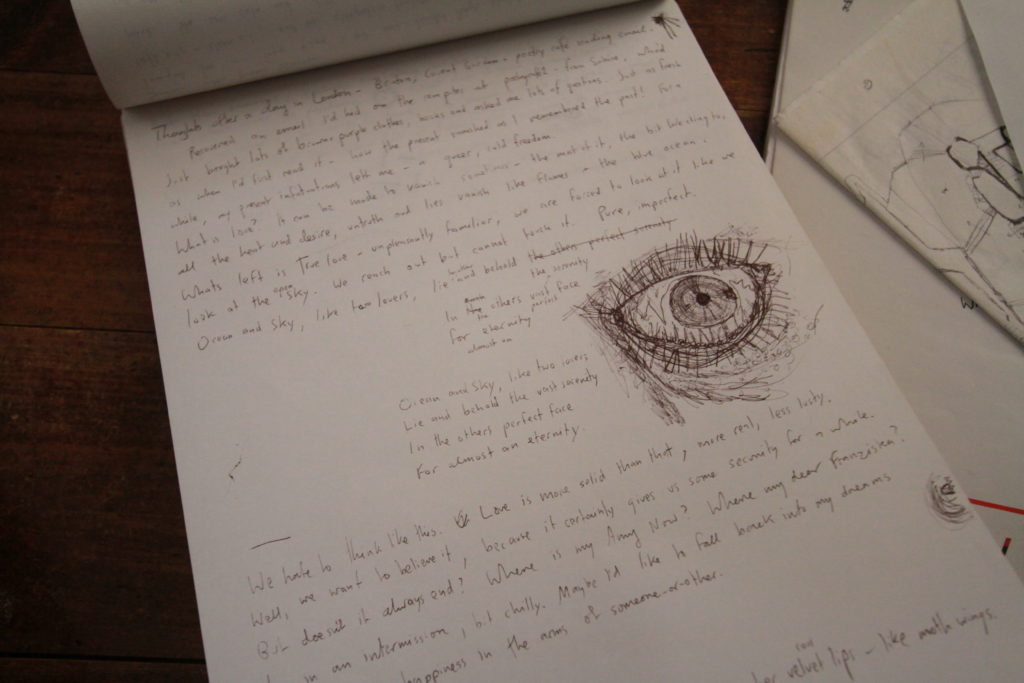 Thoughts after a day in London - Brixton, Covent Garden - poetry cafe reading email.
Recovered an email I'd had on the computer at from Sabine, who'd
just bought lots of purple clothes, books and asked me lots of questions. Just as fresh
as when I'd first read it - how the present vanished as I remembered the past! For a
while, my present infatuations left me - a queer, cold freedom.
What is love? It can be made to vanish sometimes - the most of it, the bit like this,
all the heat and desire, untruth and lies vanish like flames - the blue ocean.
Whats left is True love - unpleasantly familiar, we are forced to look at it like we
look at the open sky. We reach out but cannot touch it. Pure, imperfect.
Ocean and Sky, like two lovers, lie and behold the others perfect serenity
the serenity
In the others vast face
perfect
for eternity
almost an
Ocean and Sky, like two lovers
Lie and behold the vast serenity
In the others perfect face
For almost an eternity.
We hate to think like this. Love is more solid than that, more real, less lusty.
Well, we want to believe it, because it certainly gives us some security for a while.
But doesn't it always end? Where is my Amy Now? Where my dear Franziska?
in an intermission, but chilly. Maybe I'd like to fall back into my dreams
happiness in the arms of someone-or-other.
her velvet lips - like moth wings.